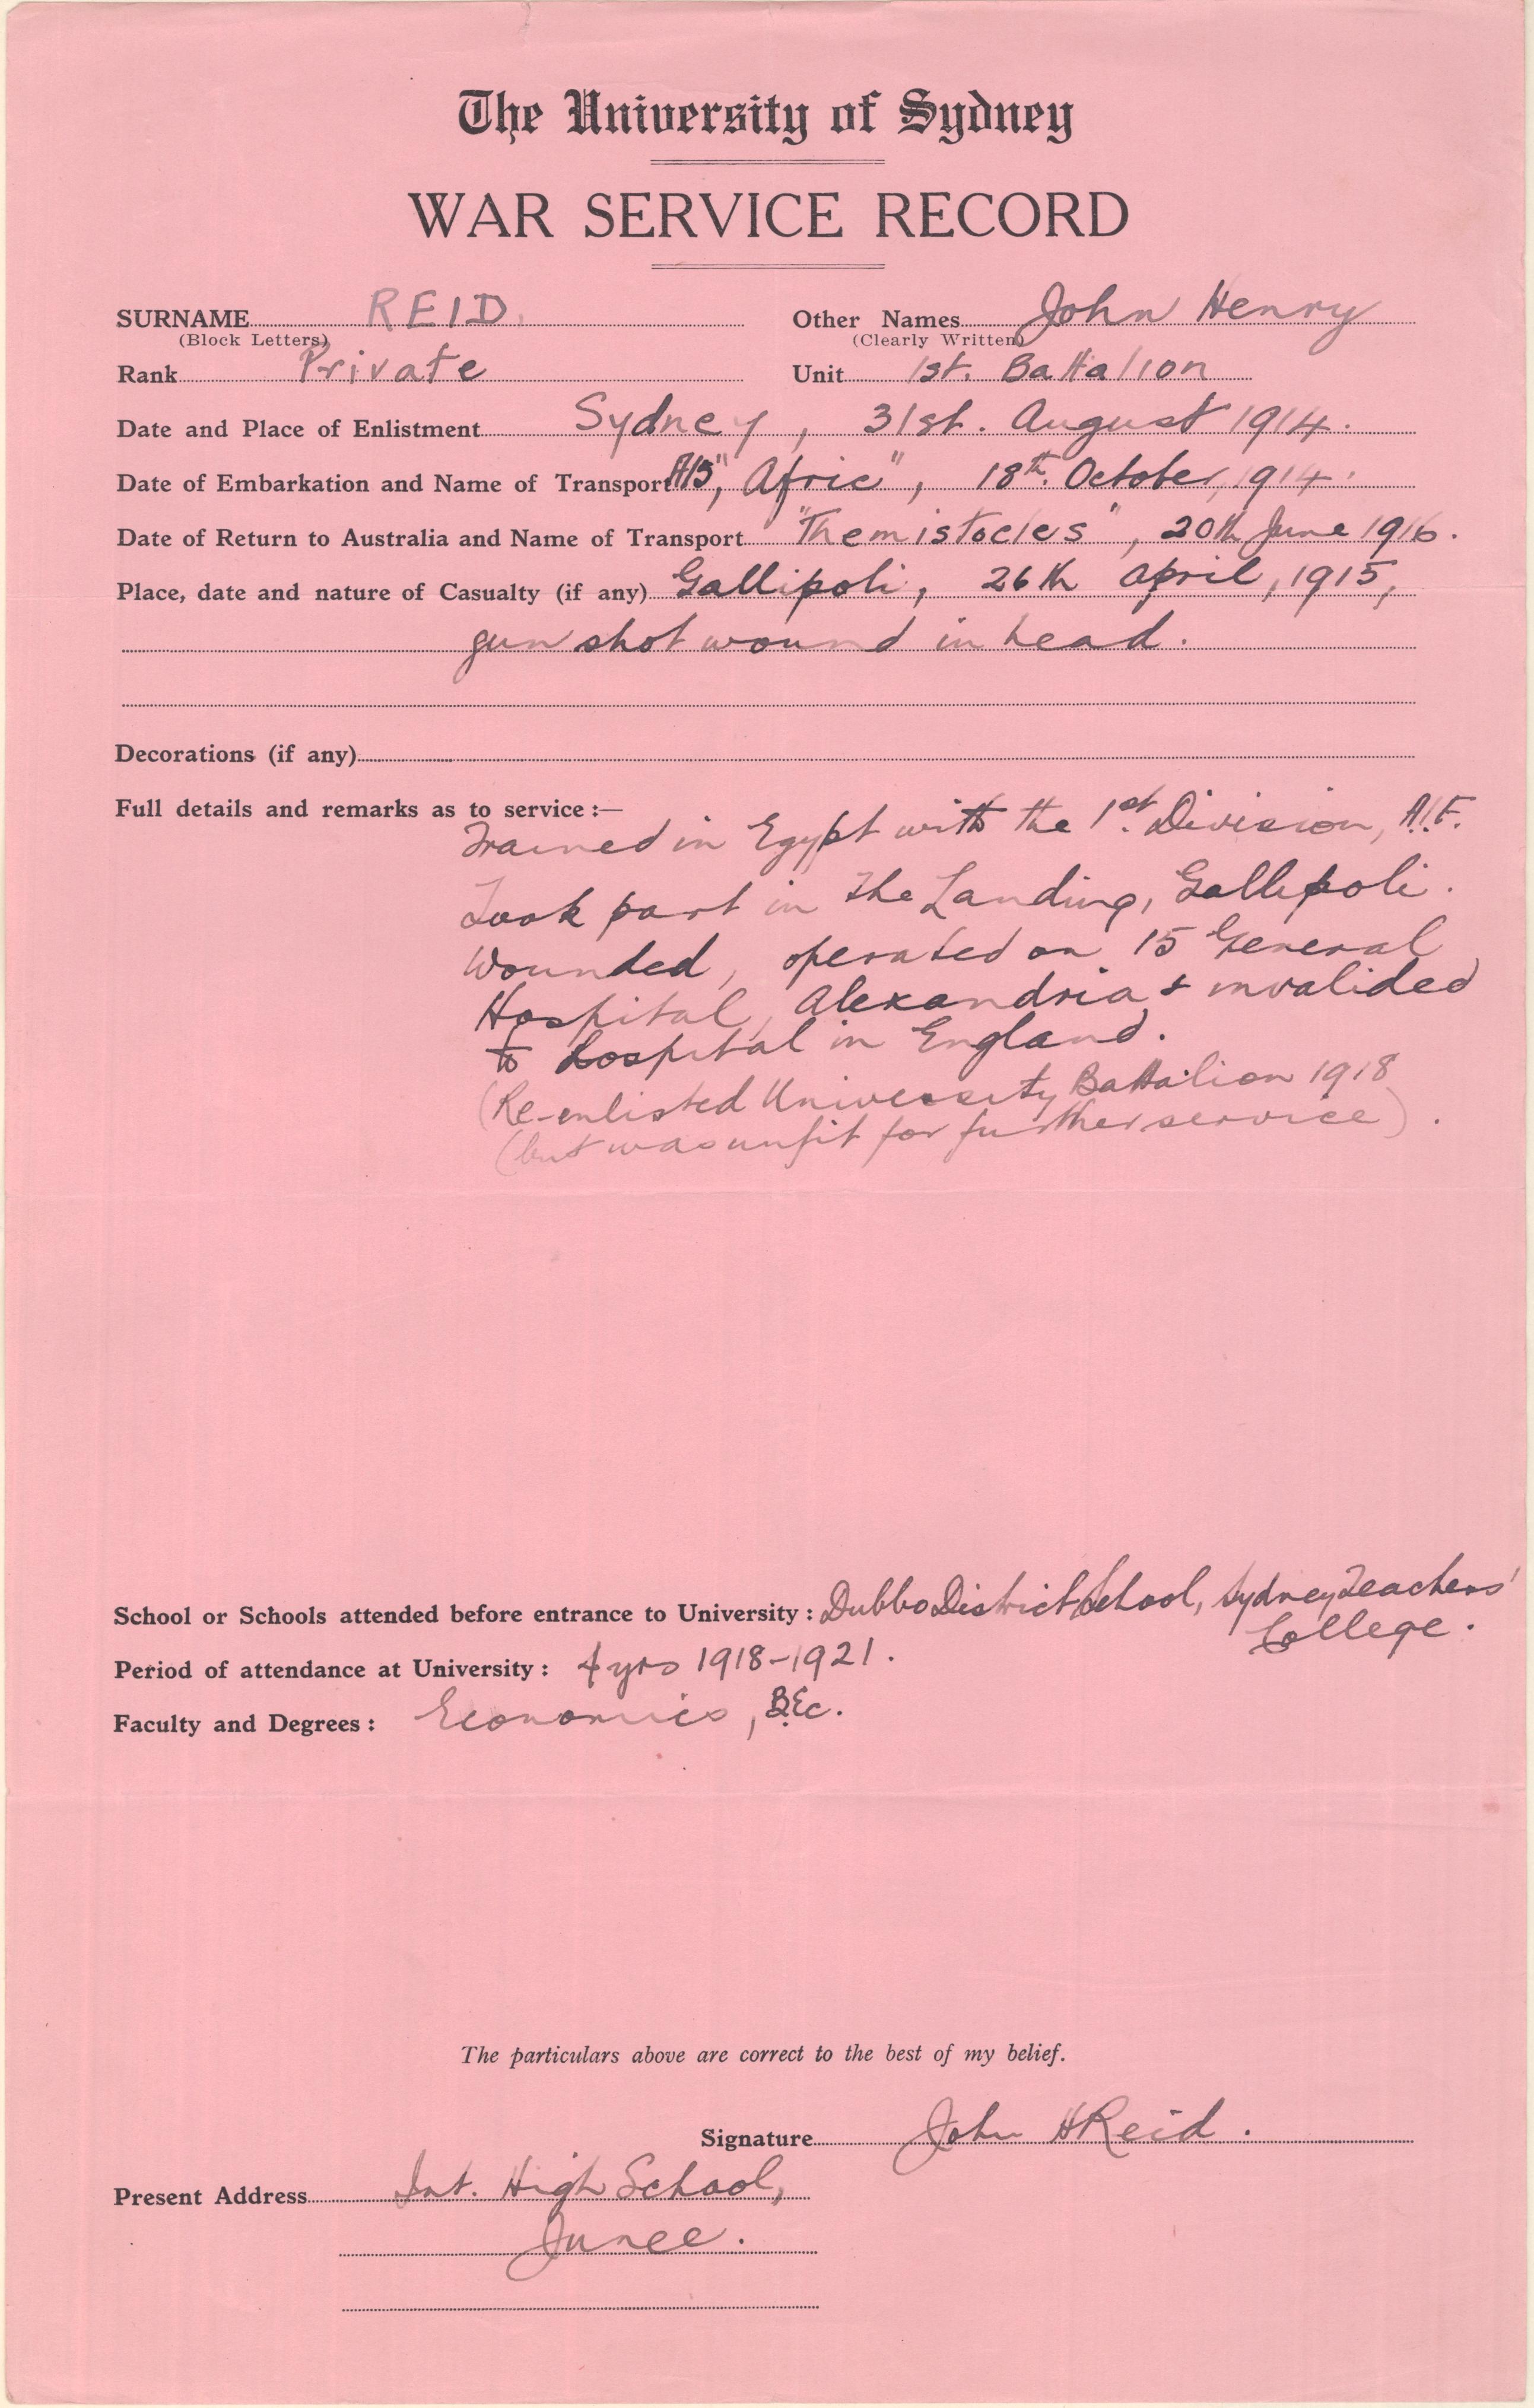 The University of Sydney
WAR SERVICE RECORD
SURNAME REID. Other Names John Henry
(Block Letters) (Clearly Written)
Rank Private Unit 1st. Battalion
Date and Place of Enlistment Sydney, 31st. August 1914.
Date of Embarkation and Name of Transport "Afric", 18th. October, 1914.
Date of Return to Australia and Name of Transport "Themistocles", 20th June 1916.
Place, date and nature of Casualty (if any) Gallipoli, 26th April, 1915,
gun shot wound in head.
Decorations (if any)
Full details and remarks as to service:—
Trained in Egypt with the 1st. Division, A.I.F.
Took part in the Landing, Gallipoli.
Wounded, operated on 15 General
Hospital, Alexandria & invalided
to hospital in England.
(Re-enlisted University Battalion 1918
(but was unfit for further service).
School or Schools attended before entrance to University: Dubbo District School, Sydney Teachers'
College.
Period of attendance at University: 4 yrs 1918-1921.
Faculty and Degrees: Economics, B.Ec.
The particulars above are correct to the best of my belief.
Signature John H Reid.
Present Address Int. High School,
Junee.